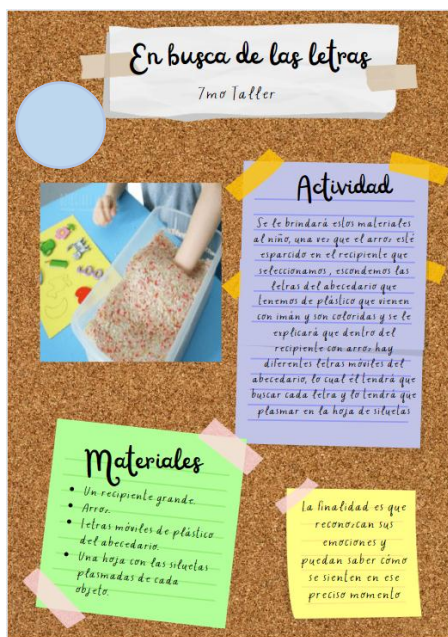 En busca de las letras
7mo Taller
Actividad
Se le brindará estos materiales
al niño, una vez que el arroz esté
esparcido en el recipiente que
seleccionamos, escondemos las
letras del abecedario que
tenemos de plástico que vienen
con imán y son coloridas y se le
explicará que dentro del
recipiente con arroz hay
diferentes letras móviles del
abecedario, lo cual él tendrá que
buscar cada letra y lo tendrá que
plasmar en la hoja de siluetas
Materiales
• Un recipiente grande.
• Arroz.
• letras móviles de plástico
del abecedario.
• Una hoja con las siluetas
plasmadas de cada
objeto.
La finalidad es que
reconozcan sus
emociones y
puedan saber cómo
se sienten en ese
preciso momento